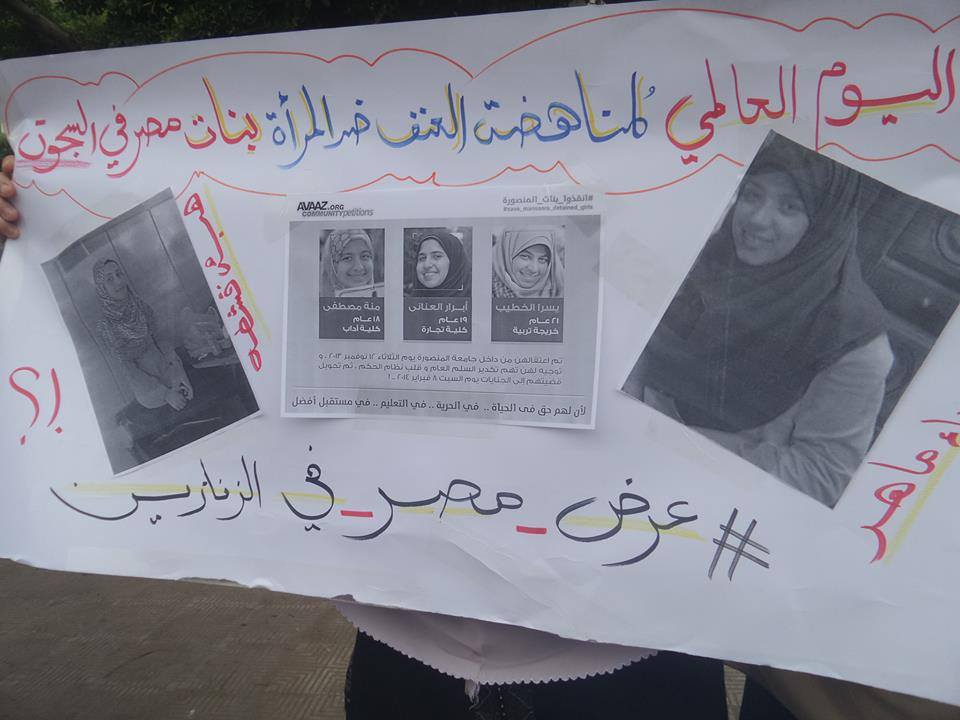 اليوم العالمي لمناهضة العنف ضد المرأة بنات مصر في السجون
AVAAZ.ORG
COMMUNITYpetitions
#انقذوا_بنات_المنصورة
#save_mansoura_detained_girls
يسرا الخطيب
٢١ عام
خريجة تربية
أبرار العنانى
١٩ عام
كلية تجارة
منة مصطفى
١٨ عام
كلية آداب
تم اعتقالهن من داخل جامعة المنصورة يوم الثلاثاء ١٢ نوفمبر ٢٠١٣ ، و
توجيه لهن تهم تكدير السلم العام و قلب نظام الحكم ، تم تحويل
قضيتهم إلى الجنايات يوم السبت ٨ فبراير ٢٠١٤ .. !
لأن لهم حق فى الحياة .. في الحرية .. في التعليم .. في مستقبل أفضل
ماهر
هند
!؟
#عرض_مصر_في الزنازين